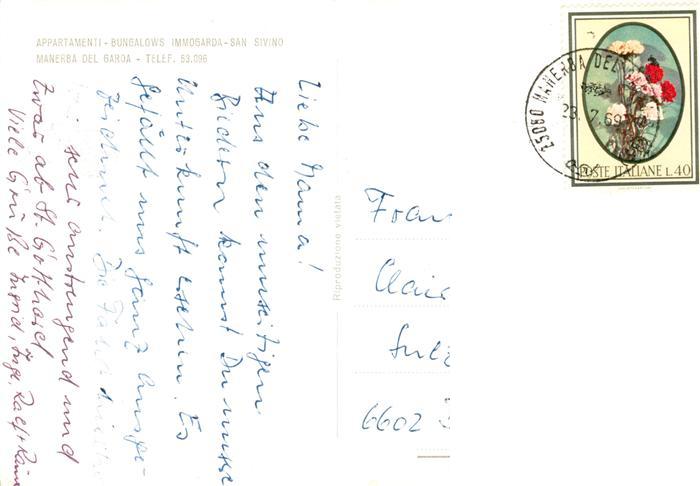 APPARTAMENTI - BUNGALOWS IMMOGARDA - SAN SIVINO
MANERBA DEL GARDA - TELEF. 63.096
Liebe Mama!
Aus den umseitigen
Bildern kannst Du unsere
Unterkunft ersehen. Es
gefällt uns ganz ausge-
zeichnet. Die Fahrt
sehr anstrengend und
zwar ab St. Gotthard
Viele Grüße Ingrid, Inge, Ralf +
Riproduzione vietata
25080 MANERBA DEL
23.7.69
POSTE ITALIANE L.40
Frau
6602